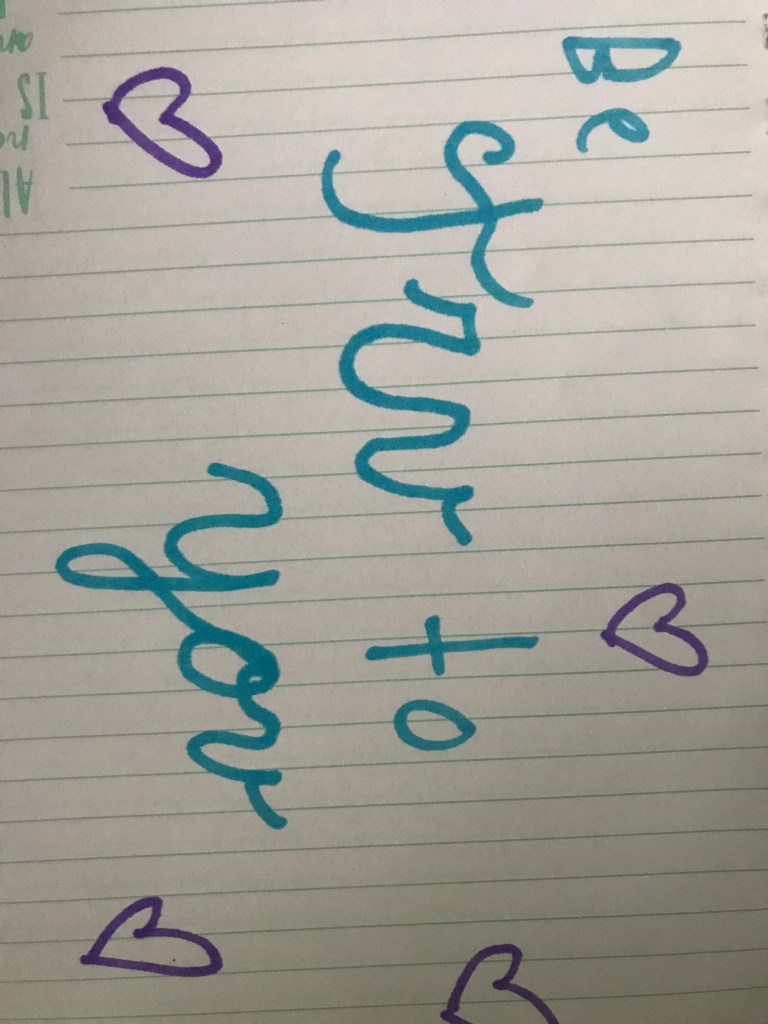 Be
Tru to
you
IS